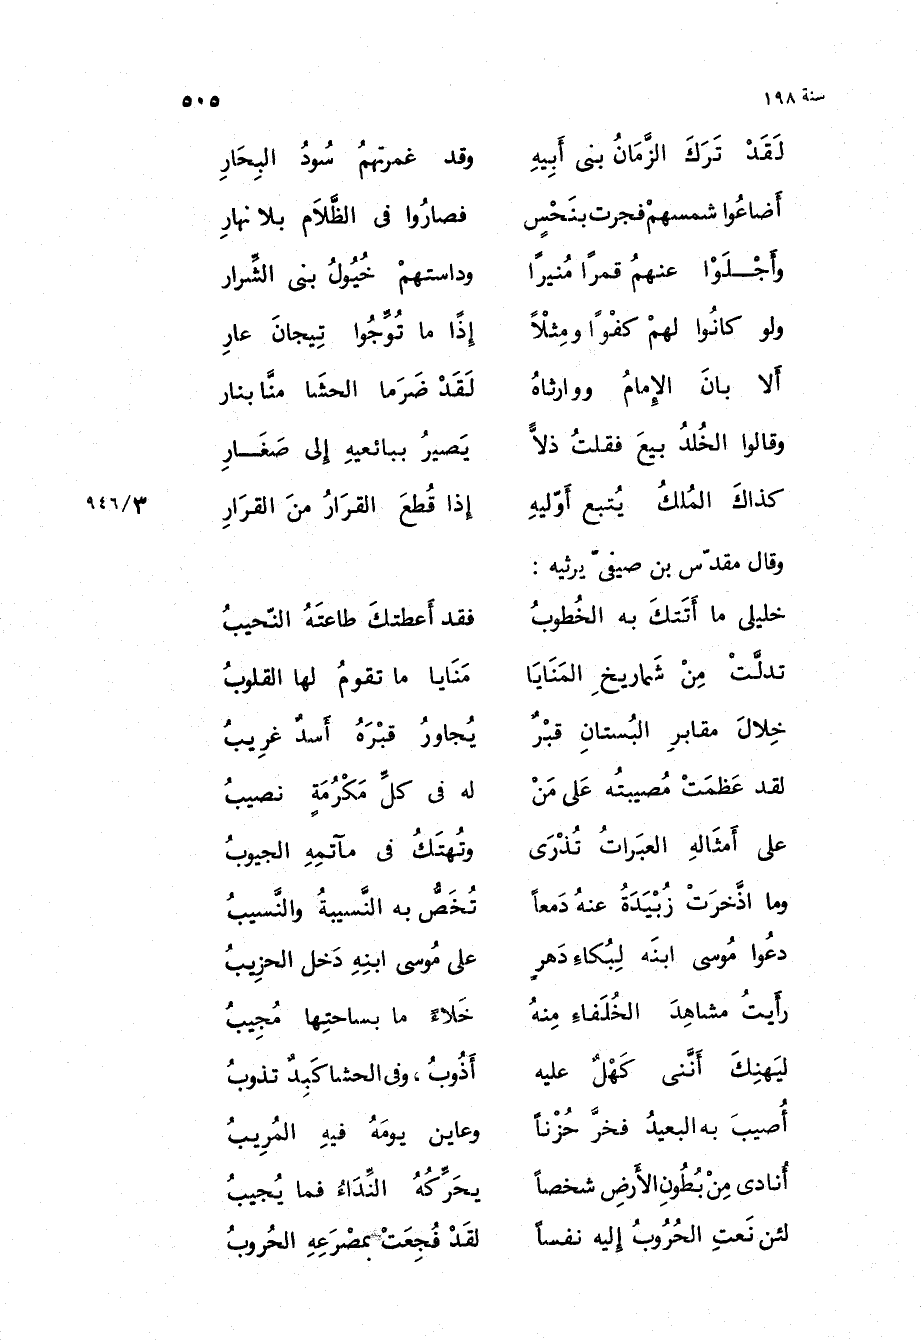 سنة ١٩٨ ٥٠٥
لَقَدْ تَرَكَ الزَّمَانُ بنى أَبِيهِ وقد غمرتهمُ سُودُ البِحَارِ
أضاعُوا شمسهمْ فجرت بنَحْسٍ فصارُوا فى الظَّلَام بلا نهارِ
وأَجْـــلَوْا عنهمُ قمرًا مُنيرًا وداستهمْ خُيُولُ بنى الشِّرار
ولو كانُوا لهمْ كفْوًا ومِثْلاً إِذًا ما تُوِّجُوا تِيجانَ عارِ
أَلا بانَ الإِمامُ ووارثاهُ لَقَدْ ضَرَما الحشَا منَّا بنار
وقالوا الخُلدُ بيعَ فقلتُ ذلاًّ يَصيرُ ببائعيهِ إلى صَغَـــارِ
كذاكَ المُلكُ يُتبع أَوّليهِ إذا قُطعَ القرَارُ منَ القرَارِ ٩٤٦/٣
وقال مقدّس بن صيفىّ يرثيه :
خليلى ما أَتَتكَ به الخُطوبُ فقد أَعطتكَ طاعتَهُ النّحيبُ
تدلَّتْ مِنْ شَماريخِ المَنَايَا مَنَايا ما تقومُ لها القلوبُ
خِلالَ مقابرِ البُستانِ قبْرٌ يُجاورُ قبْرَهُ أَسدٌ غريبُ
لقد عَظمَتْ مُصيبتُه عَلَى مَنْ له فى كلِّ مَكْرُمَةٍ نصيبُ
على أَمثَالهِ العبَراتُ تُذْرَى وتُهتَكُ فى مآتمِهِ الجيوبُ
وما اذَّخرَتْ زُبْيَدَةُ عنهُ دَمعاً تُخَصُّ به النَّسيبةُ والنَّسيبُ
دعُوا مُوسى ابنَه لِبُكاءِ دَهرٍ على مُوسى ابنِهِ دَخل الحزِيبُ
رأَيتُ مشاهِدَ الخُلَفاءِ مِنهُ خَلاءً ما بساحتِها مُجِيبُ
ليَهنِكَ أَنَّنى كَهْلٌ عليه أَذُوبُ ، وفى الحشا كَبِدٌ تذوبُ
أُصيبَ به البعيدُ فخرَّ حُزْناً وعاين يومَهُ فيهِ المُرِيبُ
أُنادى مِنْ بُطُونِ الأَرضِ شخصاً يحَرِّكُهُ النِّدَاءُ فما يُجيبُ
لئن نَعتِ الحُرُوبُ إليه نفساً لقَدْ فُجِعَتْ بمصْرَعِهِ الحُروبُ